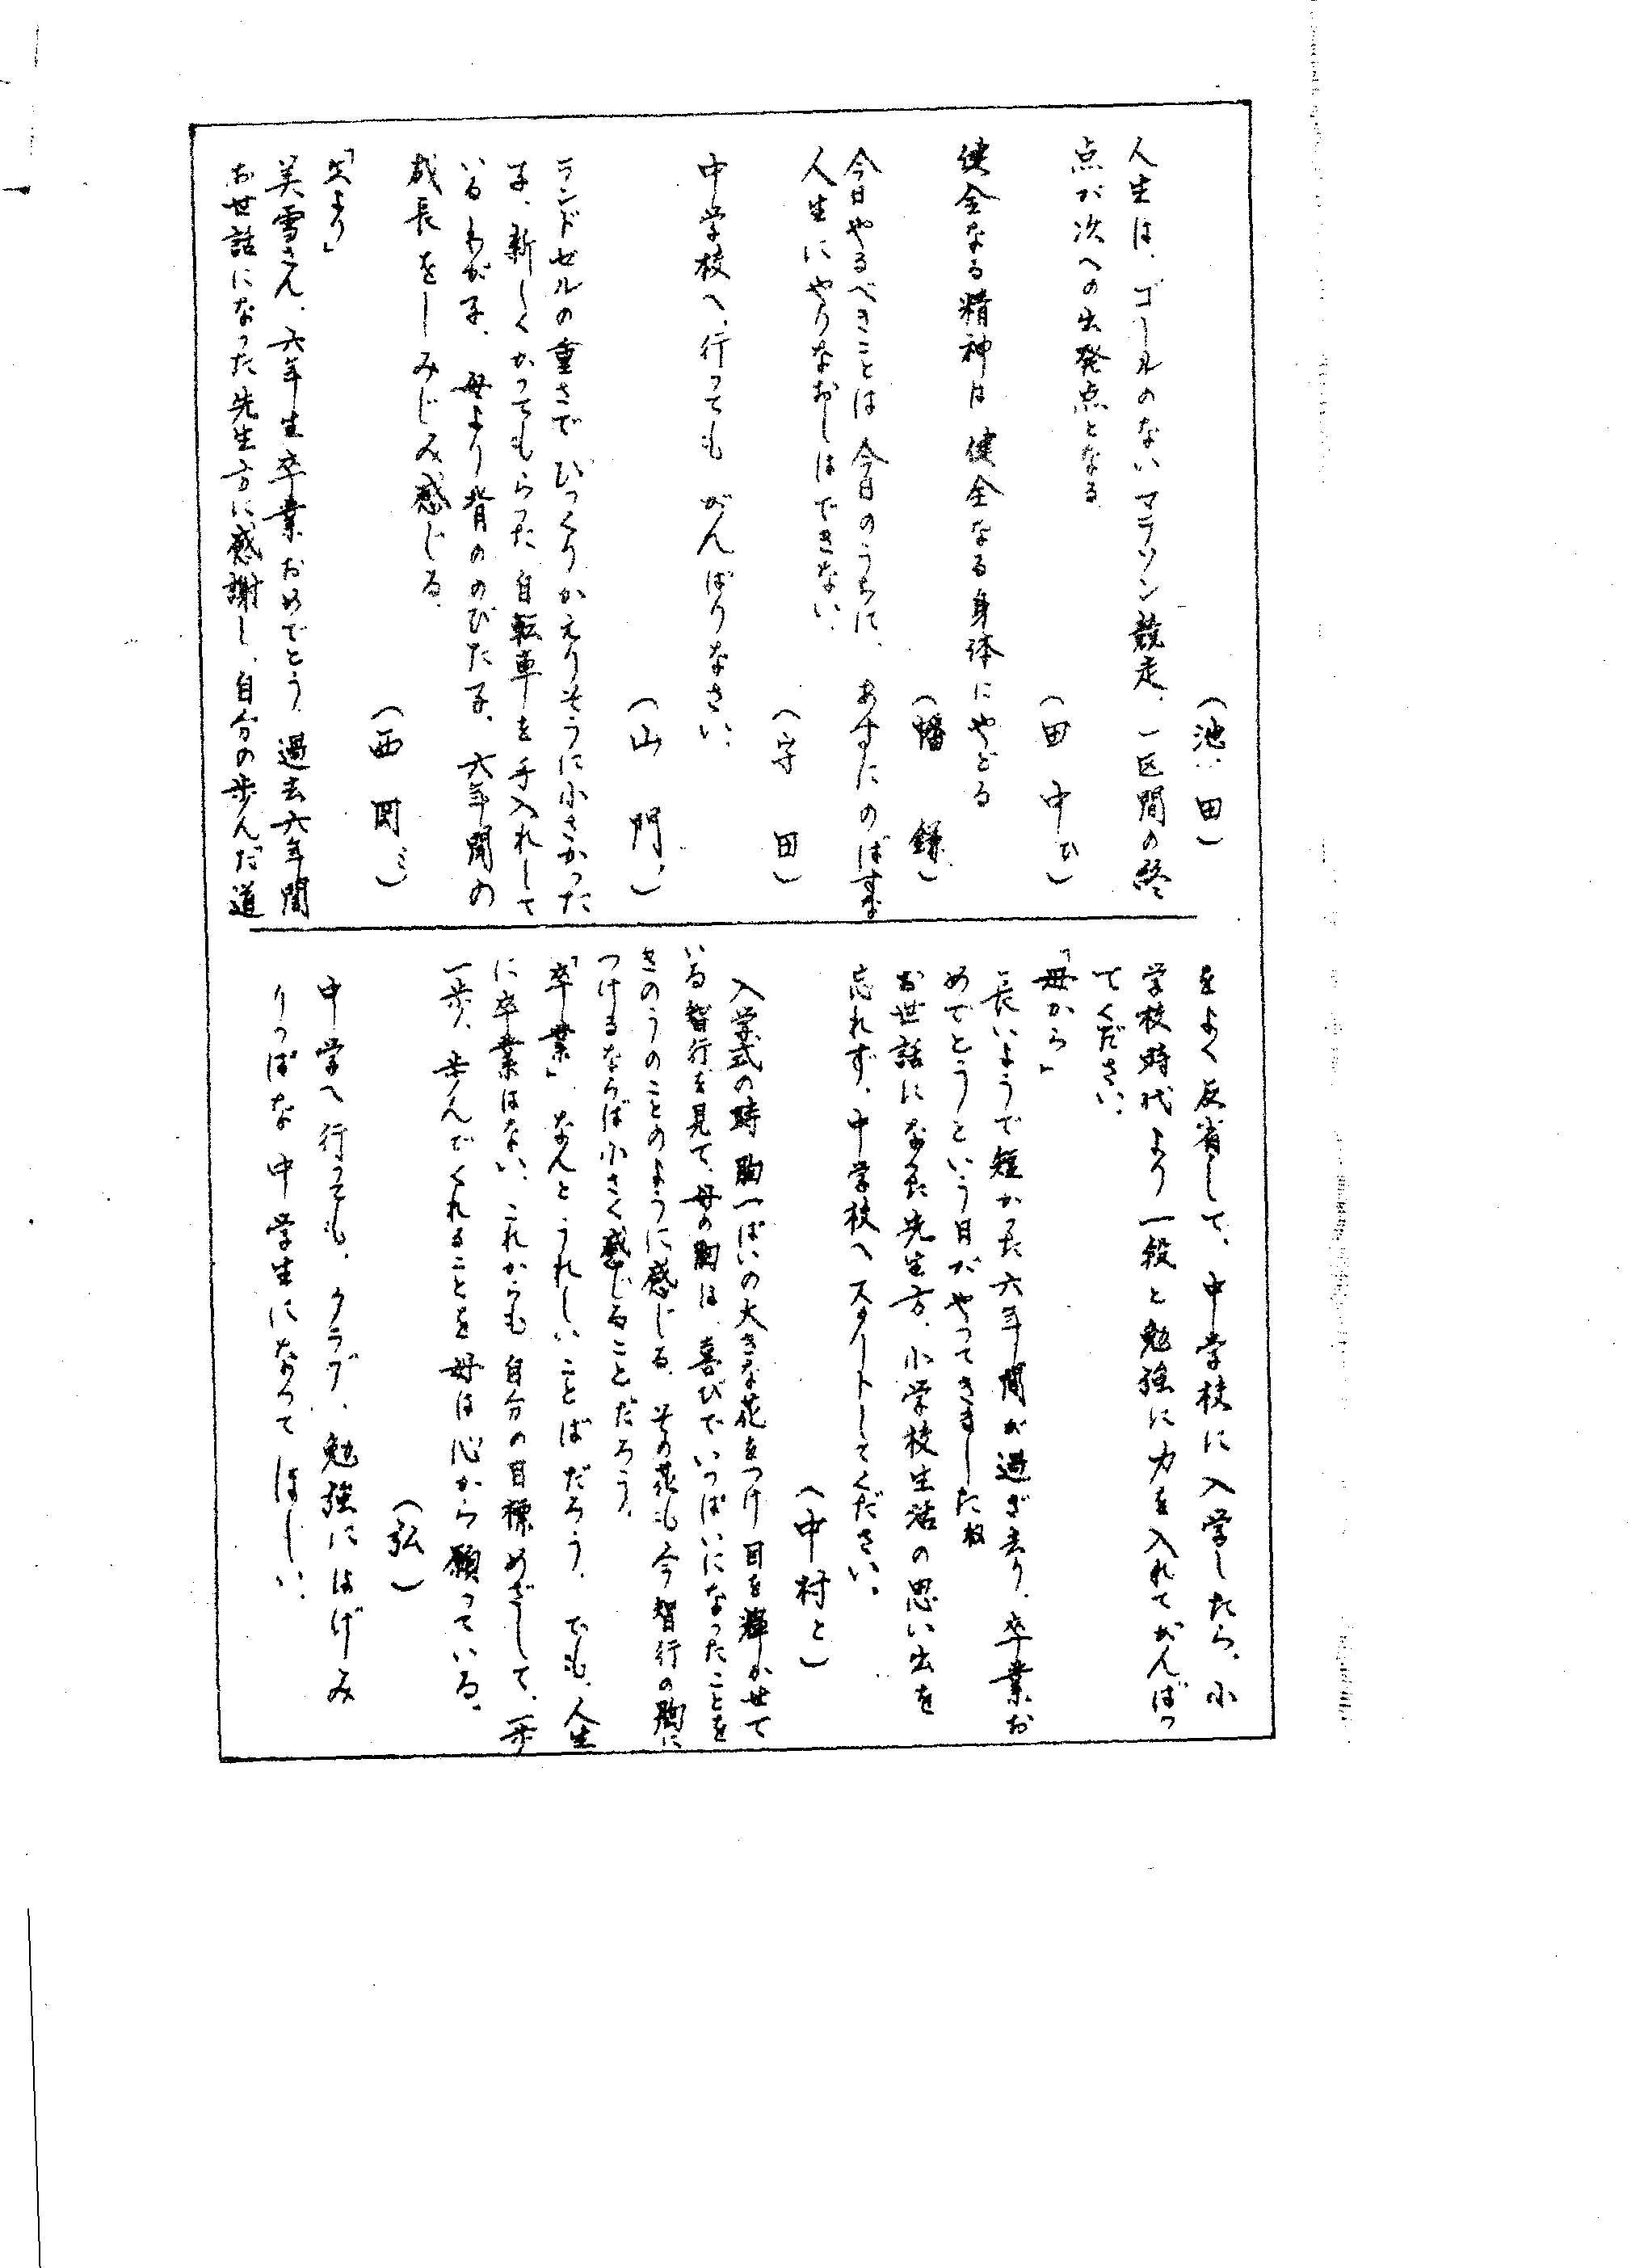 (池田)
人生は、ゴールのないマラソン競走、一区間の終
点が次への出発点となる
(田中ひ)
健全なる精神は健全なる身体にやどる
(幡鎌)
今日やるべきことは今日のうちに、あすにのばすな
人生にやりなおしはできない、
(守田)
中学校へ、行っても がんばりなさい、
(山門)
ランドセルの重さで ひっくりかえりそうに小さかった
子、新しくかってもらった自転車を手入れして
いるわが子、母より背ののびた子、六年間の
成長をしみじみ感じる、
(西岡ミ)
「父より」
美雪さん、六年生卒業おめでとう 過去六年間
お世話になった先生方に感謝し、自分の歩んだ道
をよく反省して、中学校に入学したら、小
学校時代より一段と勉強に力を入れてがんばっ
てください、
「母から」
長いようで短かった六年間が過ぎ去り、卒業お
めでとうという日がやってきましたね
お世話になった先生方、小学校生活の思い出を
忘れず、中学校へスタートしてください。
(中村と)
入学式の時 胸一ぱいの大きな花をつけ目を輝かせて
いる智行を見て、母の胸は、喜びでいっぱいになったことを
きのうのことのように感じる、その花も今智行の胸に
つけるならば小さく感じることだろう、
「卒業」、なんとうれしいことばだろう、でも、人生
に卒業はない、これからも自分の目標めざして、一歩
一歩、歩んでくれることを母は心から願っている、
(弘)
中学へ行っても、クラブ、勉強にはげみ
りっぱな中学生になって ほしい、